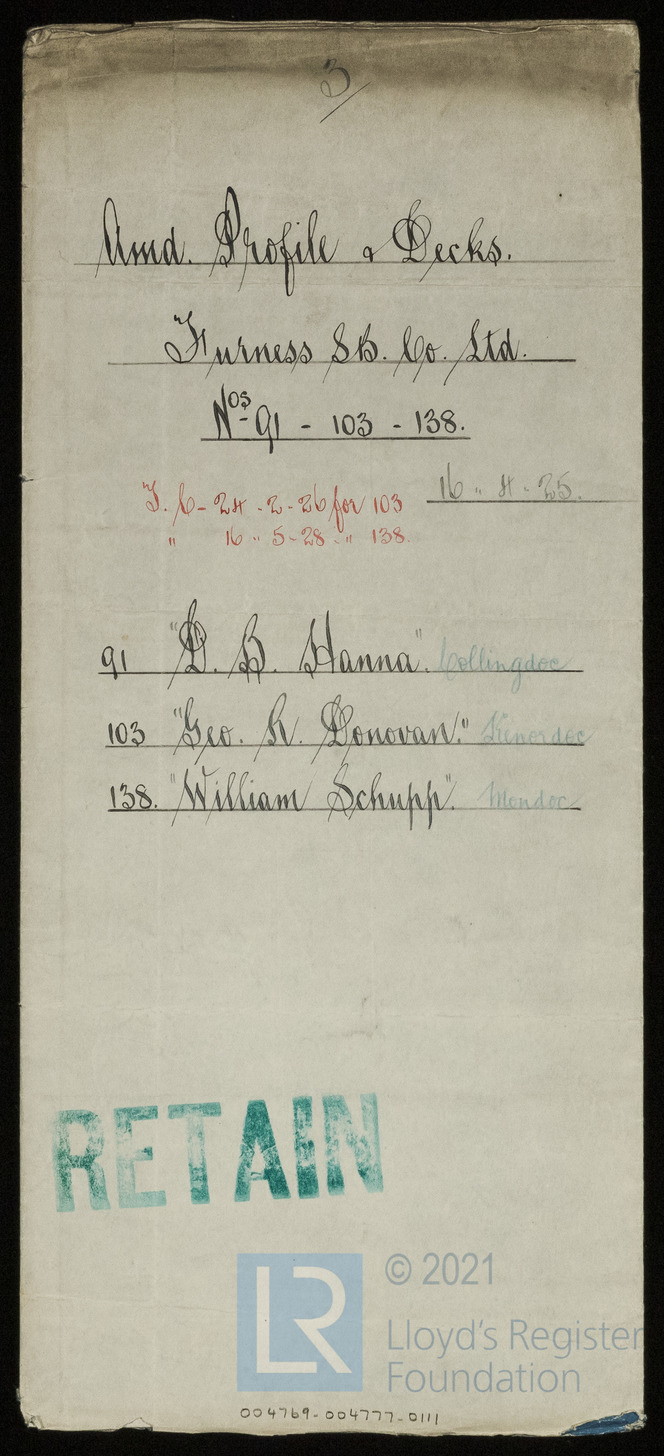 3/
Amd. Profile & Decks.
Furness SB. Co. Ltd.
Nos 91 - 103 - 138.
16 " 4 - 25.
F. C - 24 - 2 - 26 for 103
" 16 " 5 - 28 - " 138.
91 "D. B. Hanna". Collingdoc
103 "Geo. R. Donovan." Kenordoc
138. "William Schupp". Mondoc
RETAIN
© 2021
LR Lloyd's Register
Foundation
004769-004777-0111